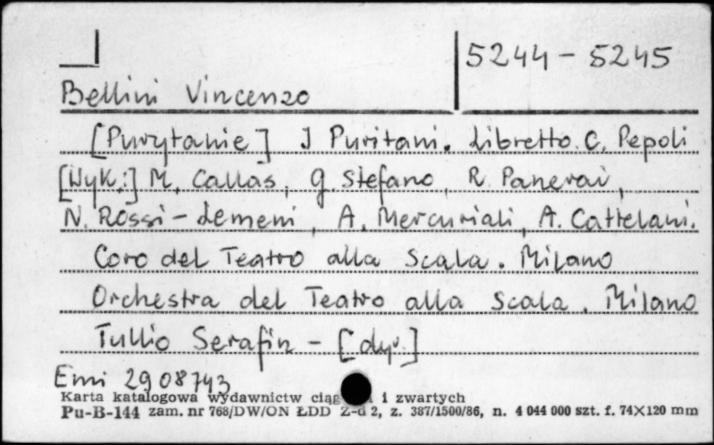 5244 - 5245
Bellini Vincenzo
[Purytanie] I Puritani. Libretto. C. Pepoli
[Wyk.:] M. Callas, G. Stefano, R. Panerai,
N. Rossi-Lemeni, A. Mercuriali, A. Cattelani.
Coro del Teatro alla Scala. Milano
Orchestra del Teatro alla Scala. Milano
Tullio Serafin - [dyr.]
Emi 29 08743
Karta katalogowa wydawnictw i zwartych
Pu-B-144 zam. nr 768/DW/ON ŁDD Z-d 2, z. 387/1500/86, n. 4 044 000 szt. f. 74×120 mm